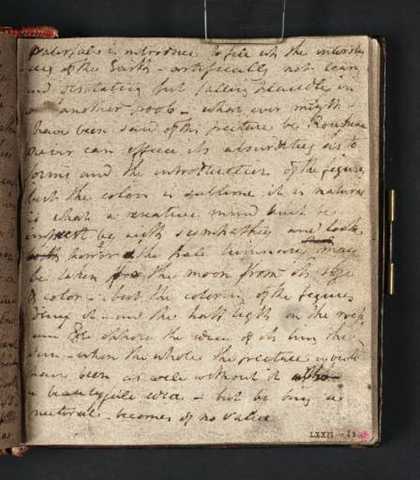 Waterfall is introduced to fill up the interstices
of the Earth - artificially not lean
and resolating but falling headle in
another pool - what ever might
have been said of this picture by Rousseau
never can efface its absurdity as to
forms and the introduction of the figures
but the color is sublime it is natural
is what a creative mind must be
with sympathy and looks
horror the pale luminary may
be taken for the moon from its size
& color - but the coloring of the figures
deny it - and the half light on the rock
the idea of its being the
Sun - when the whole the picture would
have been as well without it
a beautifull idea - but by being un
natural - becomes of no value
LXXII